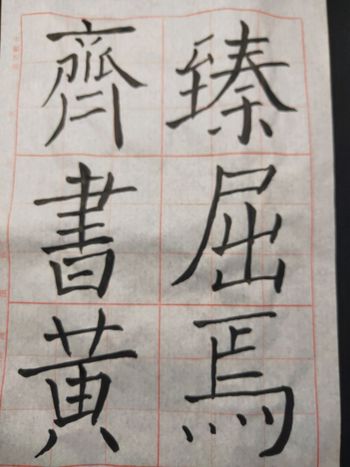 臻屈焉
齊書黃